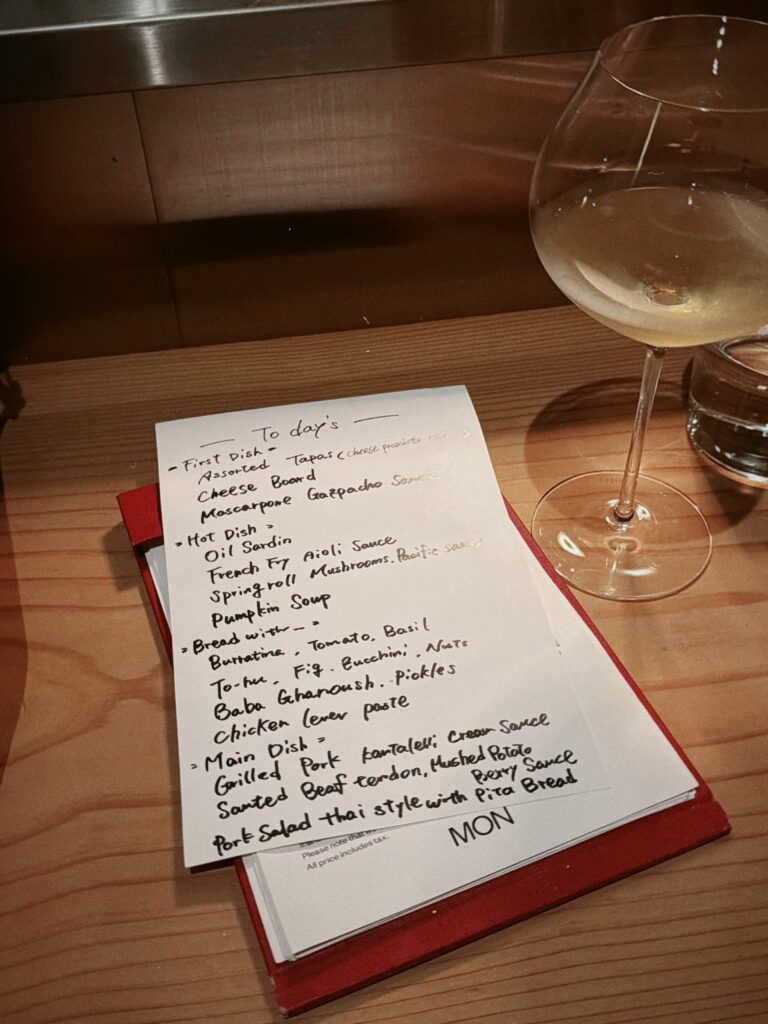 — To day's —
- First Dish -
Assorted Tapas (cheese prosciutto
Cheese Board
Mascarpone Gazpacho
- Hot Dish -
Oil Sardin
French Fry Aioli Sauce
Spring roll Mushrooms. Pacific
Pumpkin Soup
- Bread with -
Burratina . Tomato. Basil
To-hu . Fig . Zucchini . Nuts
Baba Ghanoush . Pickles
Chicken lever paste
- Main Dish -
Grilled Pork Cream Sauce
Santed Beaf tendon, Mushed Pototo
Berry Sauce
Pork Salad thai style with Pita Bread
Please note that
All price includes tax.
MON